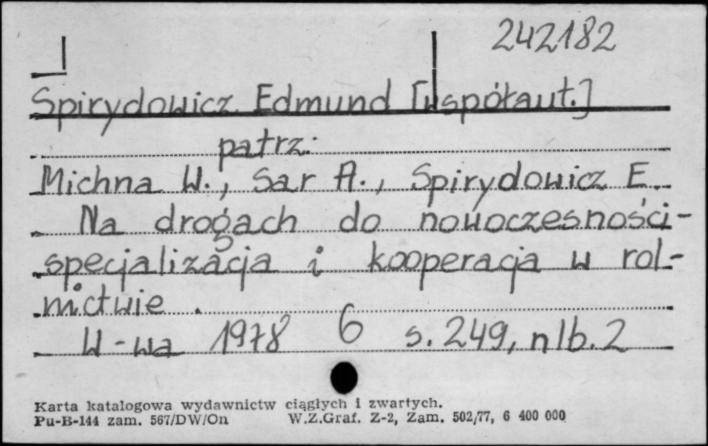 242182
Spirydowicz Edmund [współaut.]
patrz:
Michna W., Sar A., Spirydowicz E.
Na drogach do nowoczesności-
specjalizacja i kooperacja w rol-
nictwie.
W-wa 1978 6 s. 249, nlb. 2
Karta katalogowa wydawnictw ciągłych i zwartych.
Pu-B-144 zam. 567/DW/On W.Z.Graf. Z-2, Zam. 502/77, 6 400 000